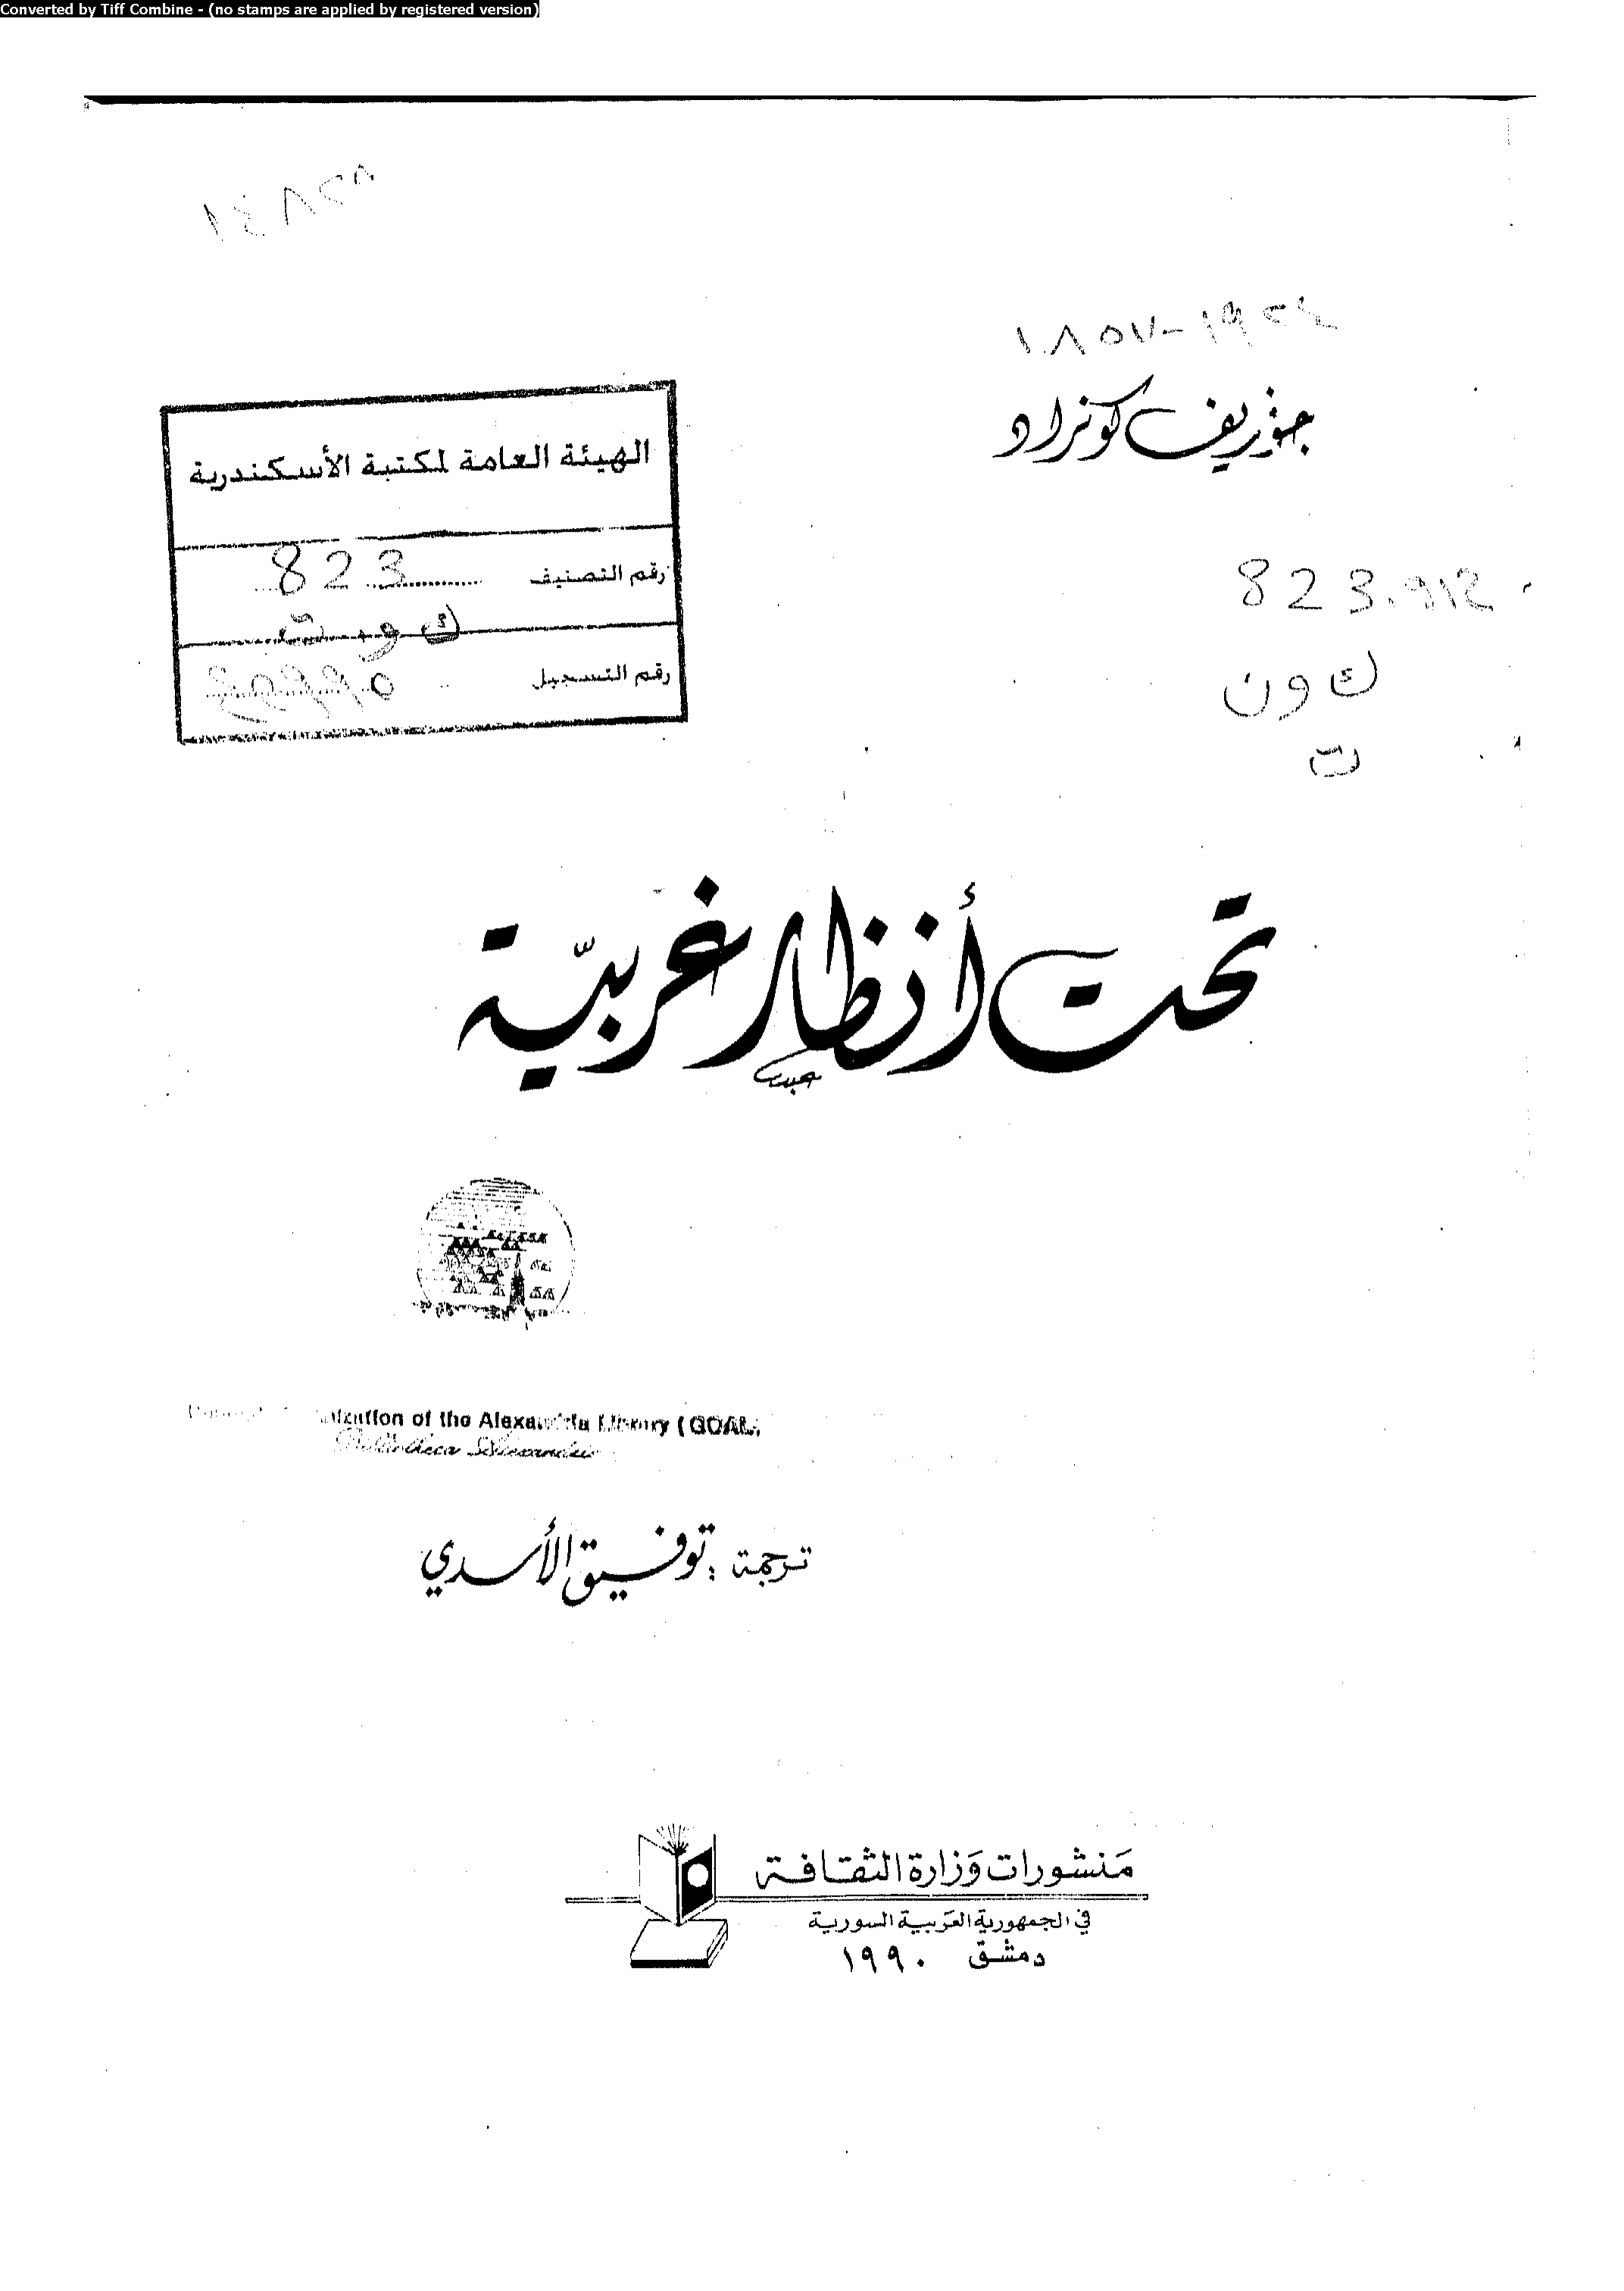 Converted by Tiff Combine - (no stamps are applied by registered version)
١٨٥٧-١٩٢٤
جوزيف كونراد
الهيئة العامة لمكتبة الأسكندرية
رقم التصنيف 823
ك و ت
رقم التسجيل
823.912
ك ون
ت
تحت أنظار غربيّة
of the Alexandria Library (GOAL
Bibliotheca Alexandrina
ترجمة : توفيق الأسدي
مَنشورات وَزارة الثقافة
في الجمهورية العَربية السورية
دمشق ١٩٩٠